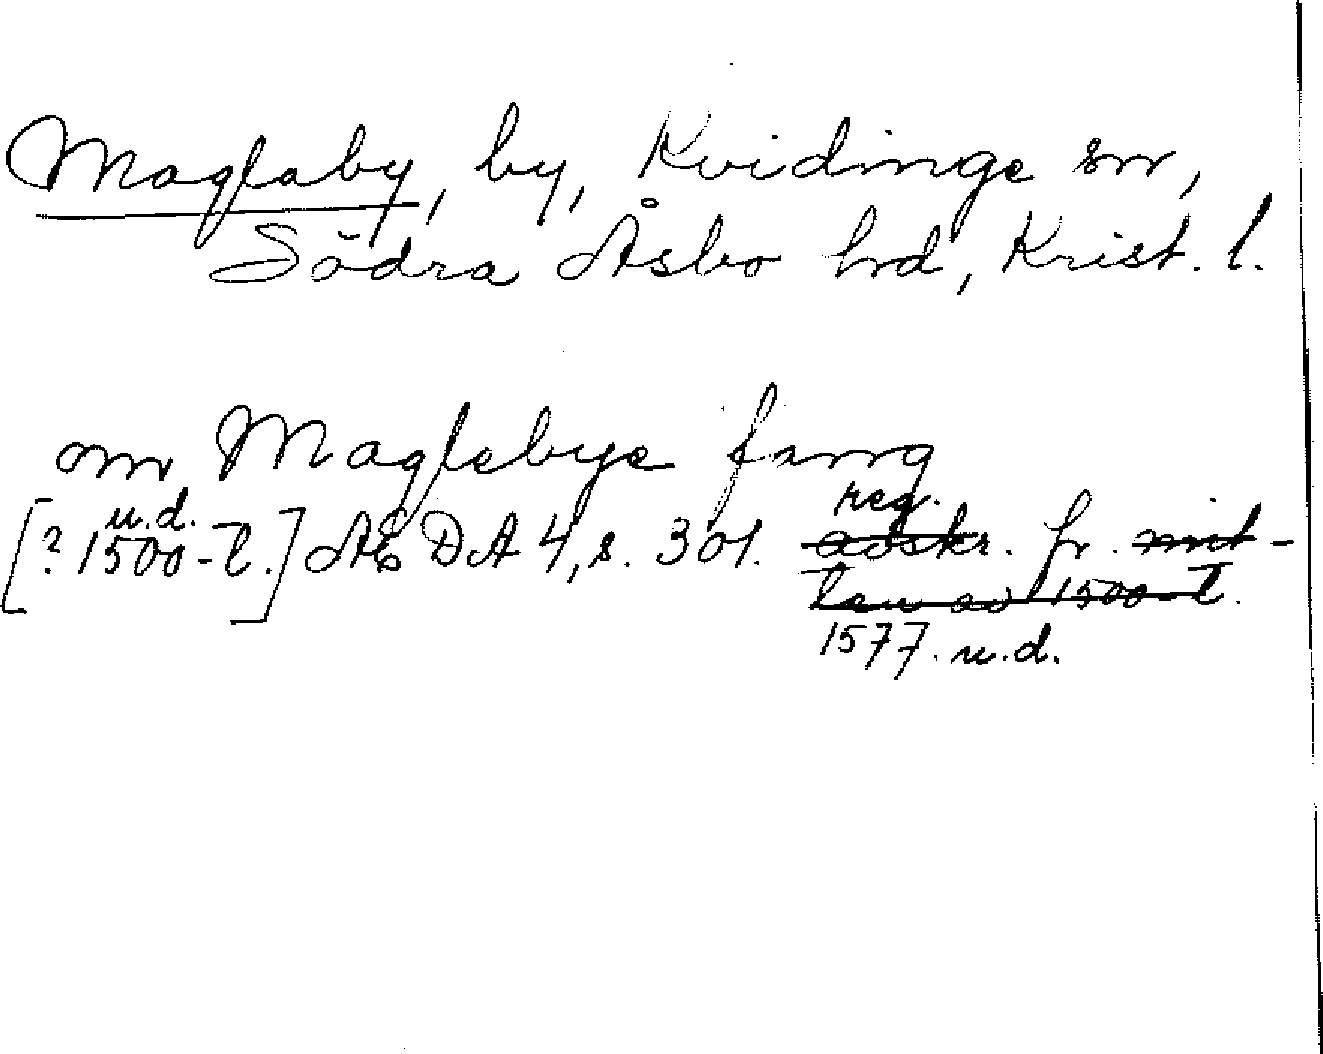 Maglaby, by, Kvidinge sn,
Södra Åsbo hd, Krist. l.
om Maglebye fang
u.d. reg.
[? 1500-t.] ÆDA 4, s. 301. avskr. fr. mit-
ten av 1500-t.
1577. u.d.